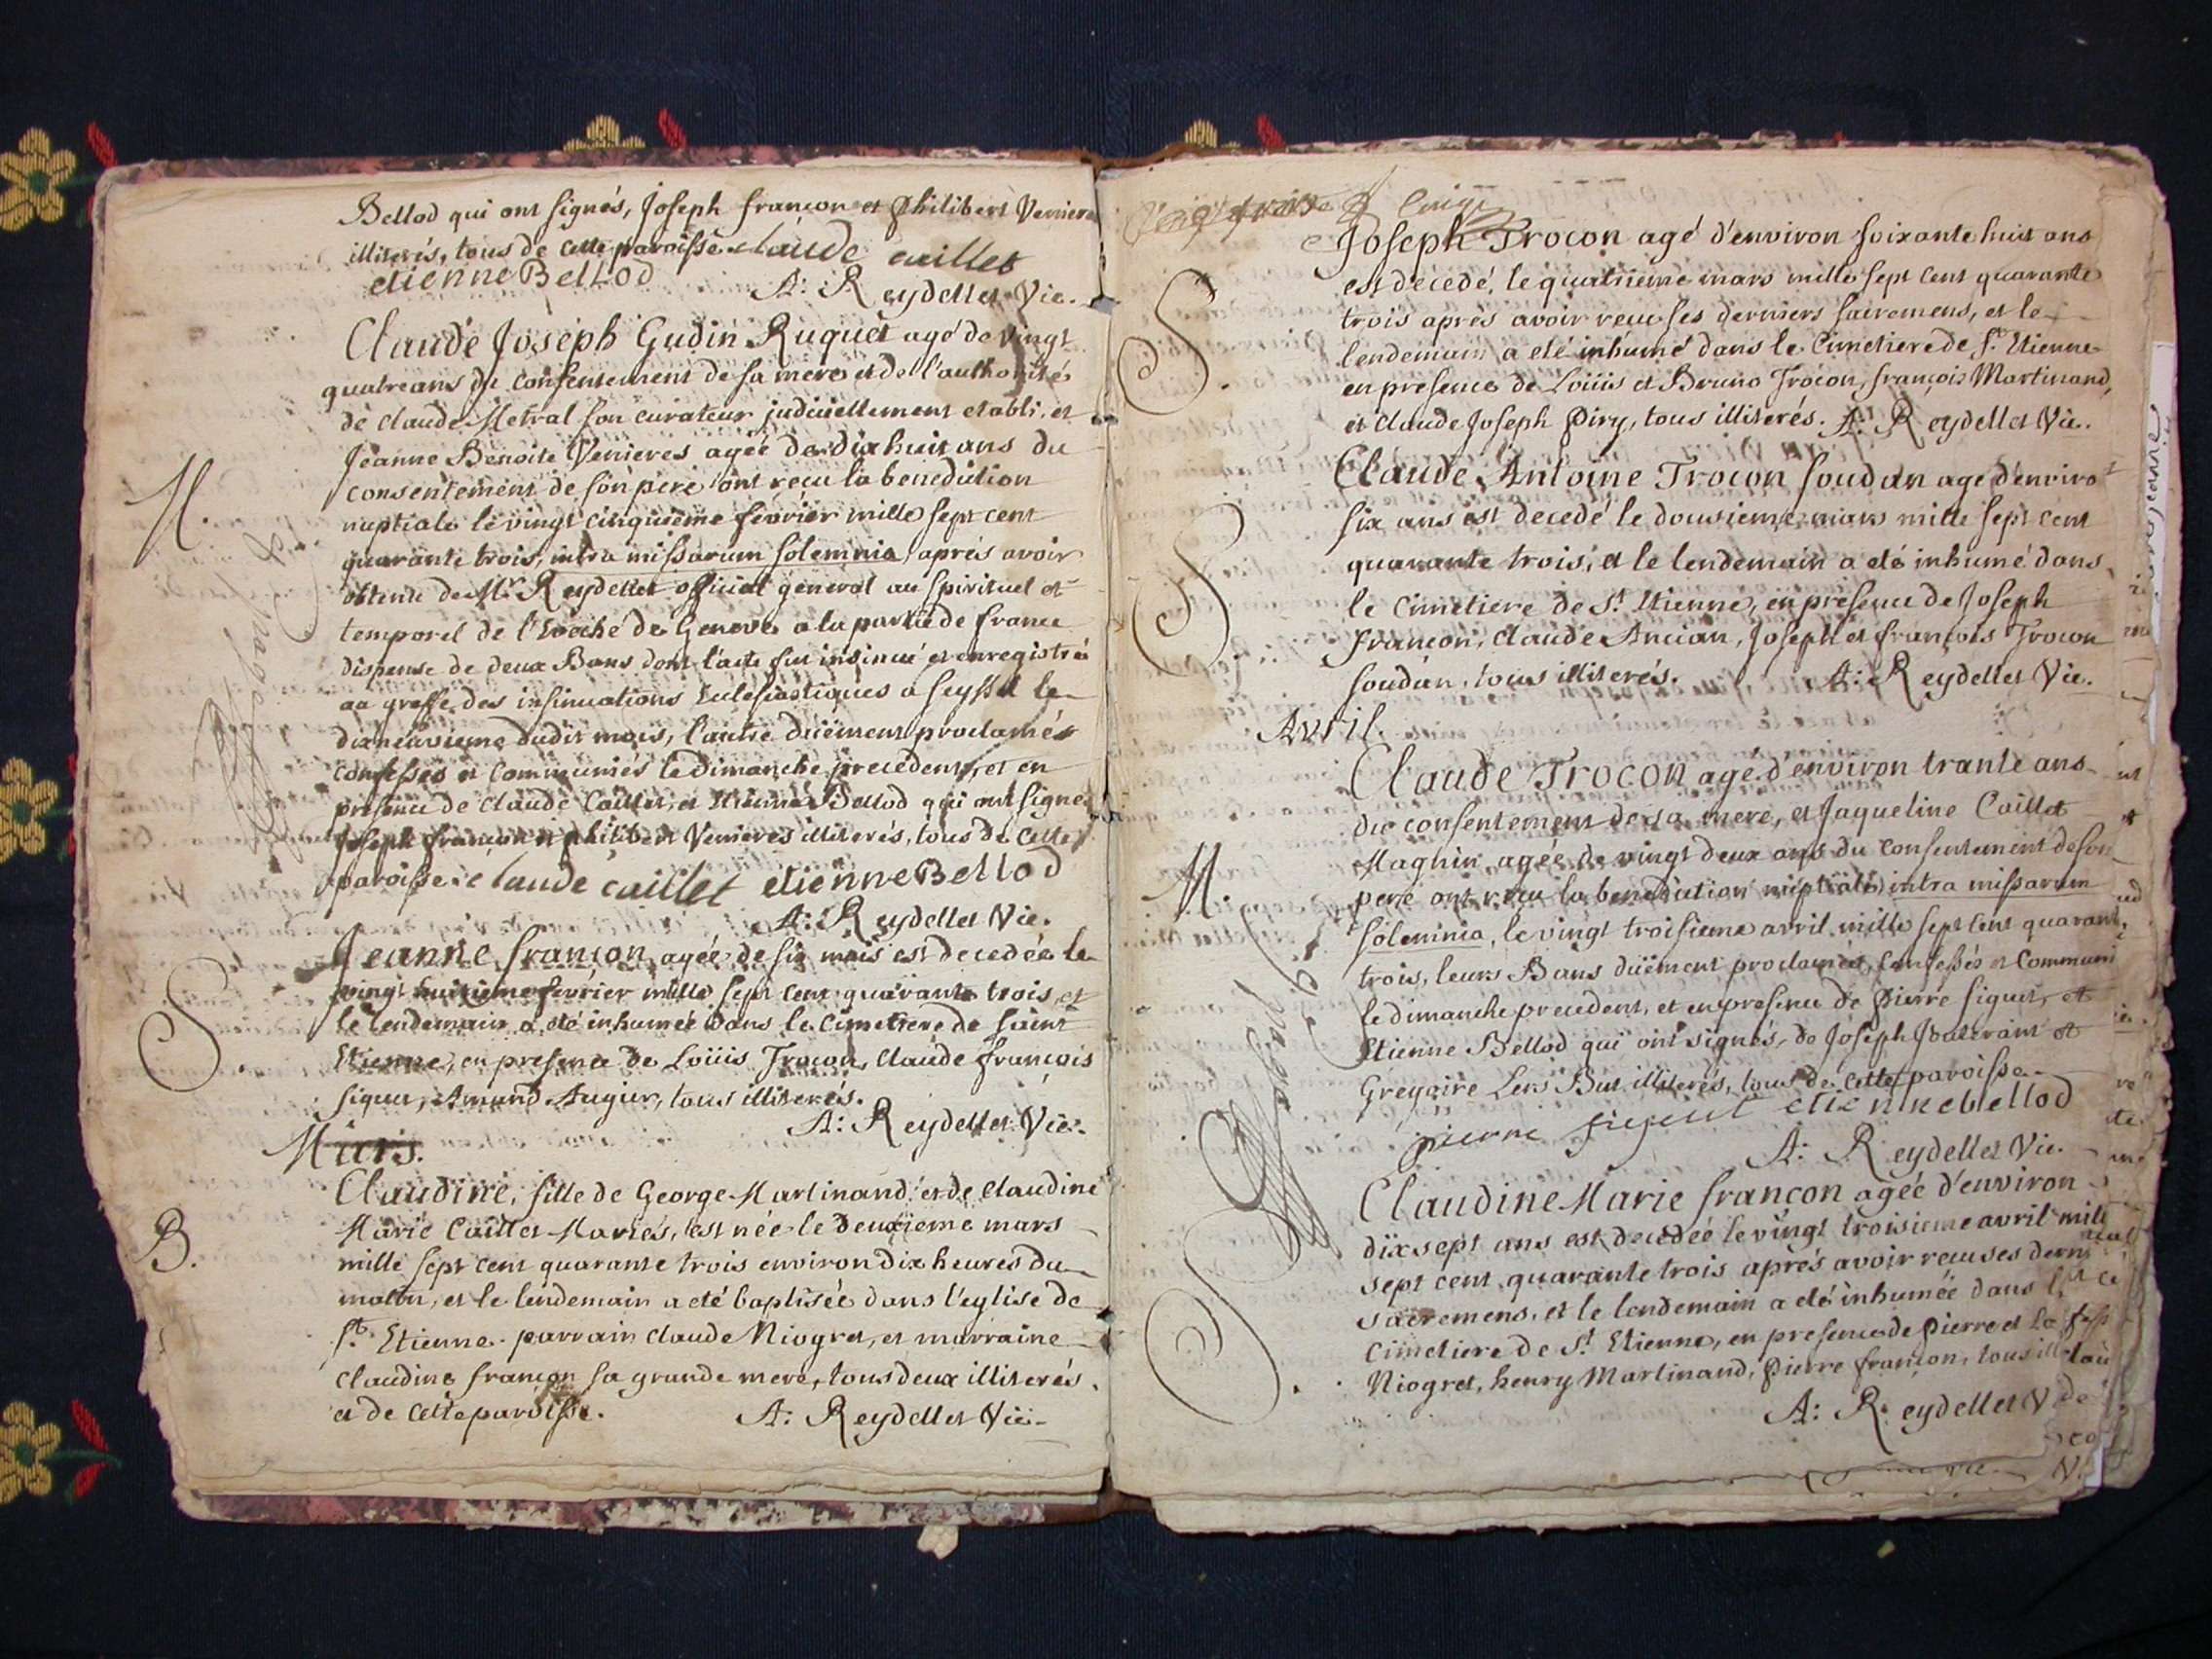 Bellod qui ont signés, Joseph françon et Philibert Vernieres
illiterés, tous de cette paroisse. claude caillet
etienne Bellod A: Reydellet Vic.
Claude Joseph Gudin Ruguet agé de vingt
quatre ans du consentement de sa mere et de l'authorité
de claude Metral son curateur judiciellement etabli, et
Jeanne Benoite Venieres agée de dix huit ans du
consentement de son pere ont reçu la benediction
M.
nuptiale le vingt cinquieme février mille sept cent
quarante trois, intra missarum solemnia, aprés avoir
obtenu de Mr. Reydellet official general au spirituel et
temporel de l'Evéché de Geneve a la partie de france
dispense de deux Bans dont l'acte fut insinué et enregistré
au greffe des insinuations Eclesiastiques a seyssel le
dixneuvieme dudit mois, l'autre düement proclamé
confessés et communiés le dimanche precedent, et en
presence de claude Caillet, et Etienne Bellod qui ont signé
Joseph françon et philibert Venieres illiterés, tous de cette
paroisse. claude caillet etienne Bellod
A: Reydellet Vic.
Jeanne françon agée de six mois est decedée le
vingt huitieme fevrier mille sept cent quarante trois, et
le lendemain a eté inhumée dans le cimetiere de saint
S.
Etienne, en presence de Loüis Trocon, Claude françois
siguet, Amund Augier, tous illiterés.
A: Reydellet Vic.
Mars.
Claudine, fille de George Martinand, et de claudine
B.
Marie Caillet Mariés, est née le deuxieme mars
mille sept cent quarante trois environ dix heures du
matin, et le lendemain a eté baptisée dans l'eglise de
st. Etienne. parrain claude Niogret, et marraine
claudine françon sa grande mere, tous deux illiterés
et de cette paroisse. A: Reydellet Vic.
Joseph Trocon agé d'environ soixante huit ans
est décedé, le quatrieme mars mille sept cent quarante
trois aprés avoir reçu ses derniers sacremens, et le
S.
lendemain a eté inhumé dans le Cimetiere de st. Etienne
en presence de Loüis et Bruno Trocon, françois Martinand,
et claude Joseph Piry, tous illiterés. A: Reydellet Vic.
Claude Antoine Trocon soudan age d'enviro
six ans est decedé le douzieme mars mille sept cent
quarante trois, et le lendemain a eté inhumé dans
S.
le cimetiere de St. Etienne, en presence de Joseph
françon, claude Ancian, Joseph et françois Trocon
soudan, tous illiterés. A: Reydellet Vic.
Avril.
Claude Trocon age d'environ trante ans
du consentement de sa mere, et Jaqueline Caillet
Magnin agée de vingt deux ans du consentement de son
M.
pere ont reçu la benediction nuptiale intra missarum
solemnia, le vingt troisieme avril mille sept cent quarante
trois, leurs Bans düement proclamés, confessés et Communi
le dimanche precedent, et en presence de pierre siguet, et
Etienne Bellod qui ont signés, de Joseph et
Gregoire Lers But illiterés, tous de cette paroisse.
pierre siguet etiennebellod
A: Reydellet Vic.
Claudine Marie françon agée d'environ
dix sept ans est decedée le vingt troisieme avril mill
sept cent quarante trois aprés avoir recu ses dern
sacremens, et le lendemain a eté inhumée dans l
Cimetiere de St. Etienne, en presence de pierre et
S.
Niogret, henry Martinand, Pierre françon, tous ill
A: Reydellet V